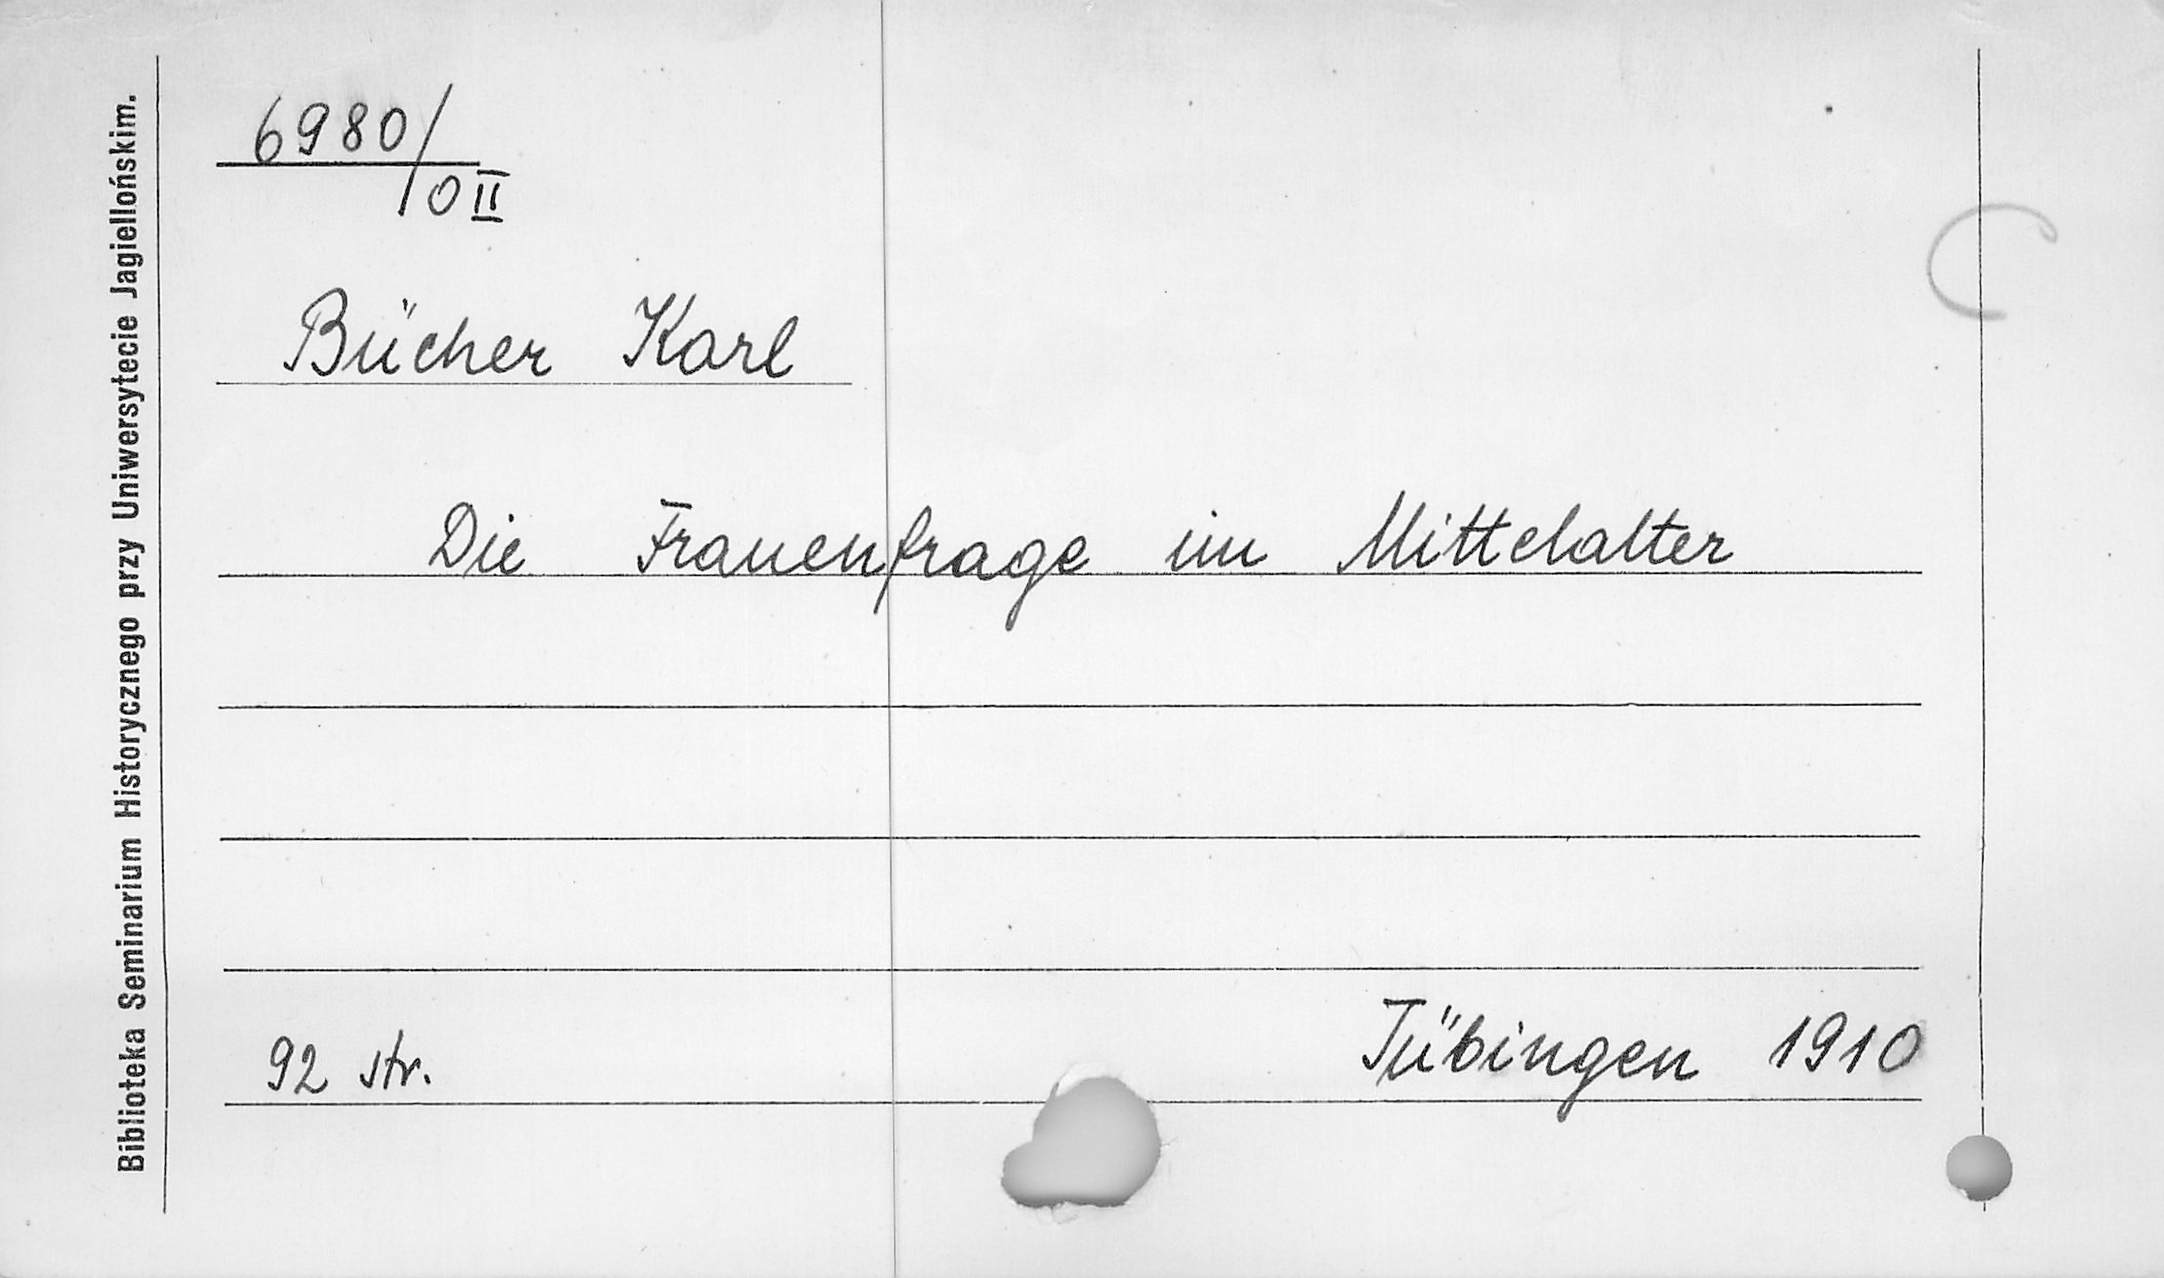 Biblioteka Seminarium Historycznego przy Uniwersytecie Jagiellońskim.
6980/
O II
Bücher Karl
Die Frauenfrage im Mittelalter
92 str.
Tübingen 1910